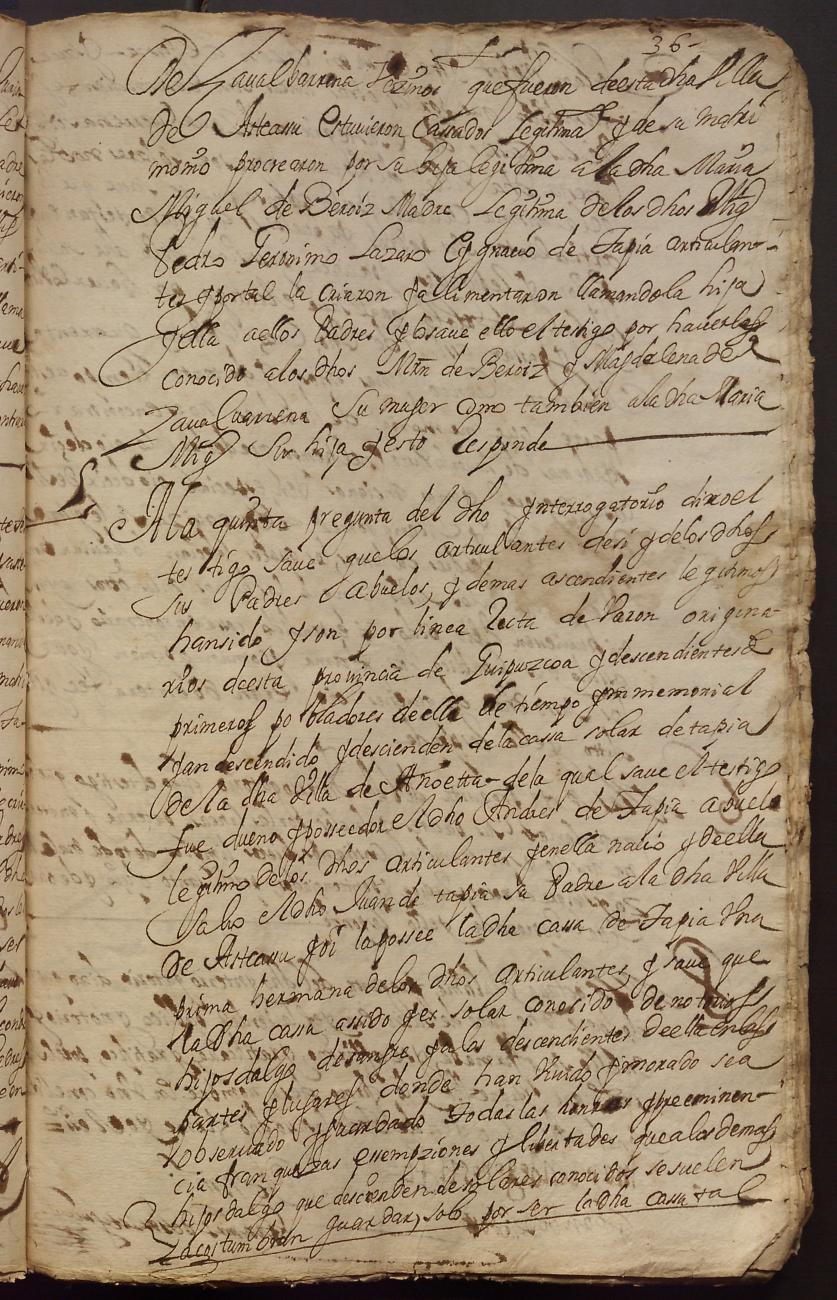 36-
De Zaualbarrena Vezinos que fueron deesta dha Villa
de Asteasu estuuieron Cassados Legitimate y de su matri
monio procrearon por su hija legitima a la dha Maria
Miguel de Beroiz Madre Legitima delos dhos Migl
Pedro Geronimo Lazaro Eygnacio de Tapia articulan-
tes y portal la criaron y alimentaron llamandola hija
y ella aellos Padres y lo saue ello el testigo por hauerlos
conocido alos dhos Mrn de Beroiz y Magdalena de
Zaualbarrena su muger como también ala dha Maria
Migl su hija y esto Responde
A la quinta pregunta del dho ynterrogatorio dixo el
testigo saue quelos articulantes desi y delos dhos
sus Padres Abuelos, y demas ascendientes legitimos
hansido y son por linea Recta de Varon origina-
rios deesta prouincia de Guipuzcoa y descendientes de
primeros pobladores deella de tiempo ynmemorial
y an descendido y descienden dela cassa solar de tapia
de la dha Villa de Anoetta dela qual saue el testigo
fue dueño y posseedor el dho Andres de Tapia abuelo
legitimo de los dhos articulantes y enella nacio y deella
salio el dho Juan de tapia su Padre ala dha Villa
de Asteasu y oi la possee la dha cassa de Tapia Vna
prima hermana delos dhos articulantes, y saue que
la dha cassa assido y es solar conocido de notorios
hijosdalgo desangre y alos descendientes deella enlas
partes y lugares donde han Viuido y morado sea
obseruado y guardado todas las honrras y preeminen-
cia franquezas exempziones y libertades que alos demas
hijosdalgo que descienden de solares conocidos se suelen
y acostumbran guardar, solo por ser la dha cassa tal